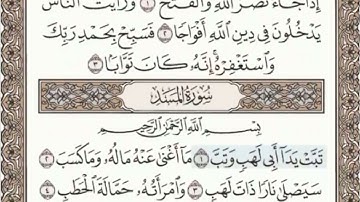 إِذَا جَاءَ نَصْرُ اللَّهِ وَالْفَتْحُ ١ وَرَأَيْتَ النَّاسَ
يَدْخُلُونَ فِي دِينِ اللَّهِ أَفْوَاجًا ٢ فَسَبِّحْ بِحَمْدِ رَبِّكَ
وَاسْتَغْفِرْهُ إِنَّهُ كَانَ تَوَّابًا ٣
سُورَةُ المَسَدِ
بِسْمِ اللَّهِ الرَّحْمَٰنِ الرَّحِيمِ
تَبَّتْ يَدَا أَبِي لَهَبٍ وَتَبَّ ١ مَا أَغْنَىٰ عَنْهُ مَالُهُ وَمَا كَسَبَ ٢
سَيَصْلَىٰ نَارًا ذَاتَ لَهَبٍ ٣ وَامْرَأَتُهُ حَمَّالَةَ الْحَطَبِ ٤